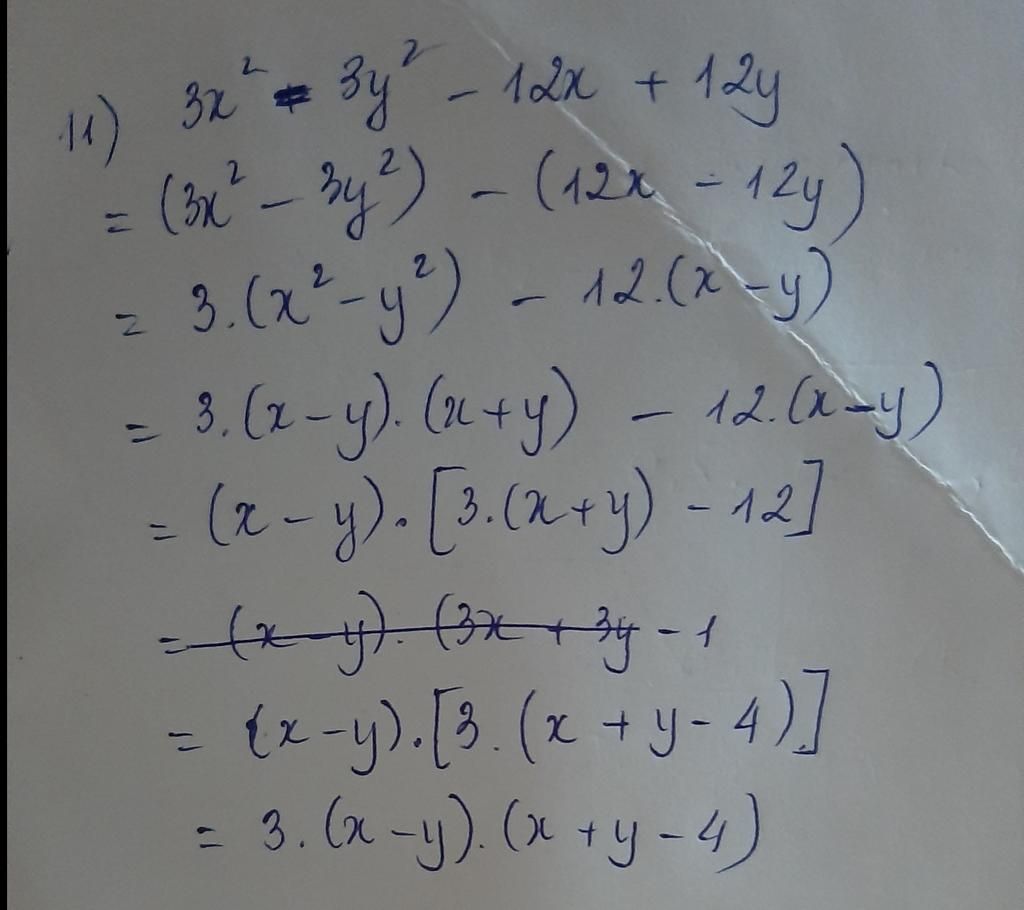 11) 3x² - 3y² - 12x + 12y
= (3x² - 3y²) - (12x - 12y)
= 3.(x² - y²) - 12.(x - y)
= 3.(x - y).(x + y) - 12.(x - y)
= (x - y).[3.(x + y) - 12]
= (x - y).(3x + 3y - 1
= (x - y).[3.(x + y - 4)]
= 3.(x - y).(x + y - 4)